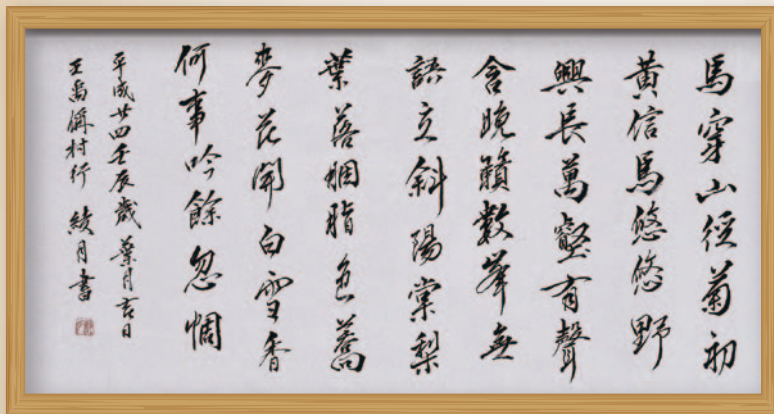 馬穿山径菊初
黄信馬悠悠野
興長萬壑有聲
含晩籟數峯無
語立斜陽棠梨
葉落胭脂色蕎
麥花開白雪香
何事吟餘忽惆
平成廿四壬辰歳 葉月吉日
王禹偁村行 綾月書